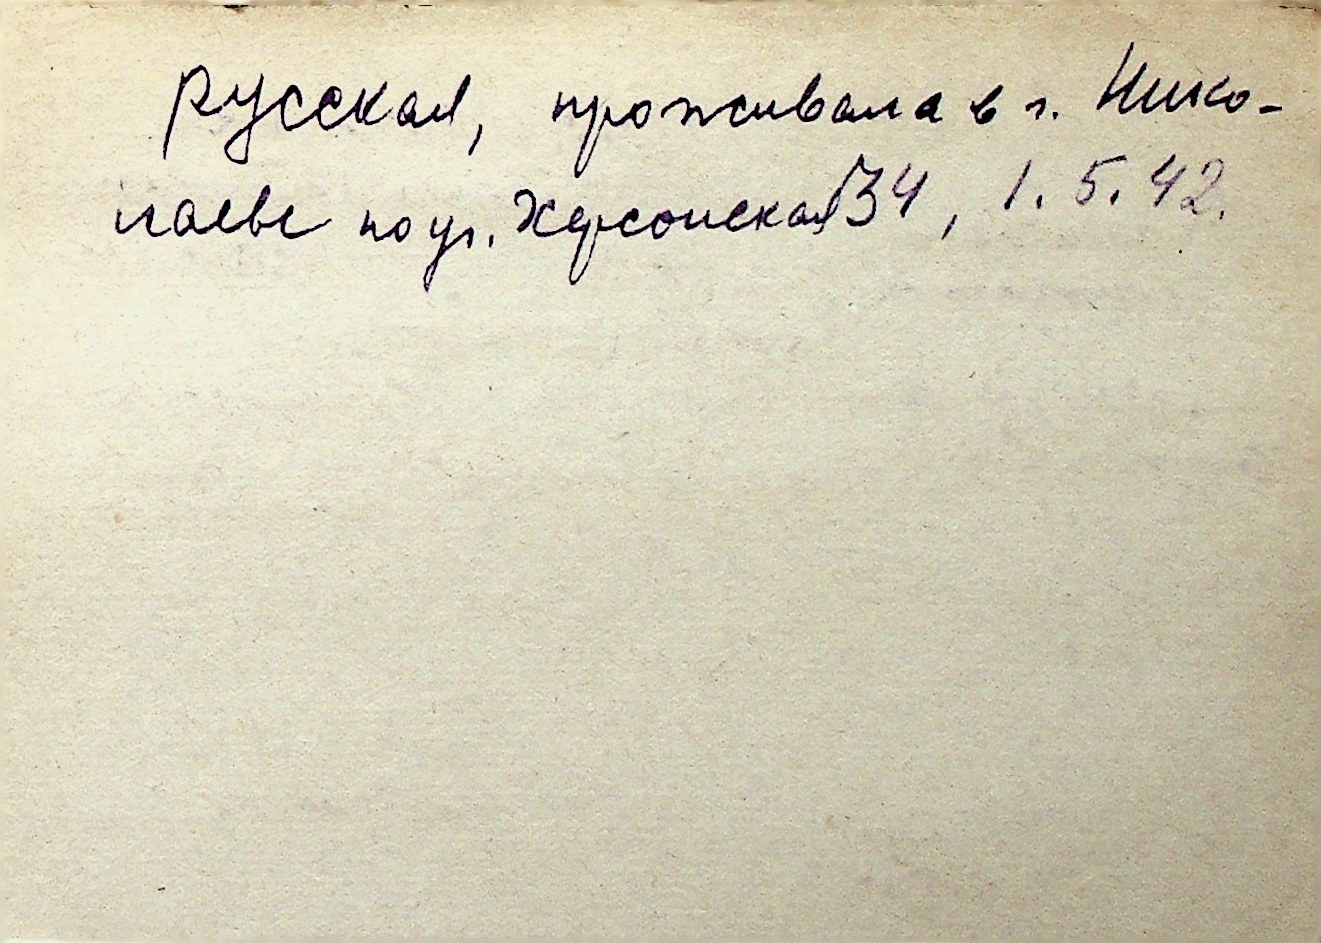 русская, проживала в г. Нико-
лаеве по ул. Херсонская 34, 1.5.42.